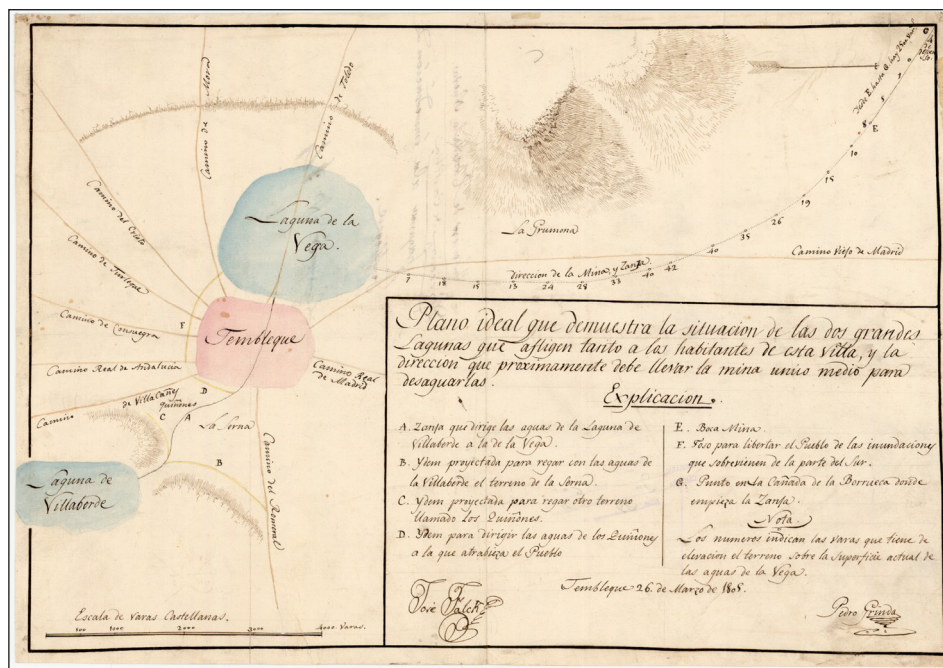 Camino de Morad
Camino de Toledo
Camino del Cristo
Camino de Turleque
Camino de Consuegra
Camino Real de Andalucia
Camino de Villacañas
Quiñones
Laguna de la
Vega.
Tembleque
F
D
C A
B
La Serna
Camino Real
de Madrid
Camino del Romeral
Laguna de
Villaberde
La Grumona
Camino Viejo de Madrid
direccion de la Mina, y Zanja
7 18 15 13 24 28 33 40 42 40 35 26 19 15 10 8 E 5
desde E hasta G hay 25 m varas
G
Plano ideal que demuestra la situacion de las dos grandes
Lagunas que afligen tanto a los habitantes de esta Villa, y la
direccion que proximamente debe llevar la mina unico medio para
desaguarlas.
Explicacion.
A. Zanja que dirige las aguas de la Laguna de
Villaberde a la de la Vega.
B. Ydem proyectada para regar con las aguas de
la Villaberde el terreno de la Serna.
C. Ydem proyectada para regar otro terreno
llamado los Quiñones.
D. Ydem para dirigir las aguas de los Quiñones
a la que atrabieza el Pueblo
E. Boca Mina.
F. Foso para libertar el Pueblo de las inundaciones
que sobrevienen de la parte del Sur.
G. Punto en la Cañada de la Borrieca donde
empieza la Zanja.
Nota.
Los numeros indican las varas que tiene de
elevacion el terreno sobre la superficie actual de
las aguas de la Vega.
Tembleque 26. de Marzo de 1805.
José Falch
Pedro Grinda
Escala de Varas Castellanas.
500 1000 2000 3000 4000 Varas.